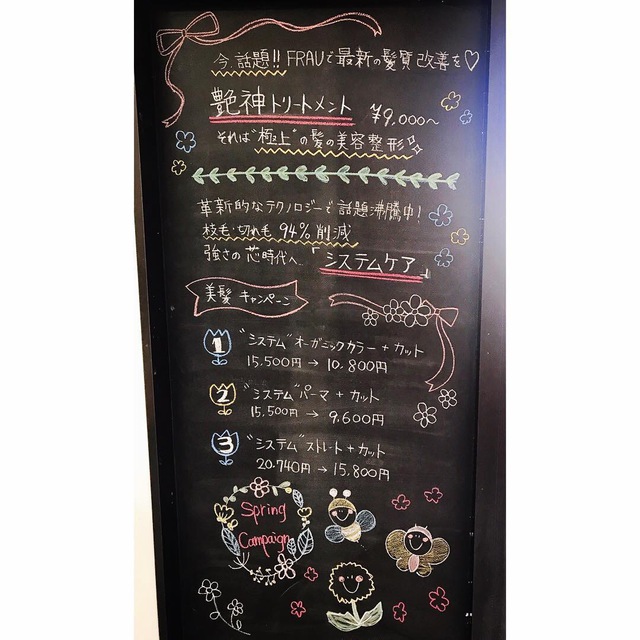 今、話題!! FRAUで最新の髪質改善を♡
艶神トリートメント ¥9,000〜
それは"極上"の髪の美容整形
革新的なテクノロジーで話題沸騰中!
枝毛・切れ毛 94%削減
強さの芯時代へ 「システムケア」
美髪キャンペーン
1 "システム"オーガニックカラー+カット
15,500円→10,800円
2 "システム"パーマ+カット
15,500円→9,600円
3 "システム"ストレート+カット
20.740円→15,800円
Spring
Campaign